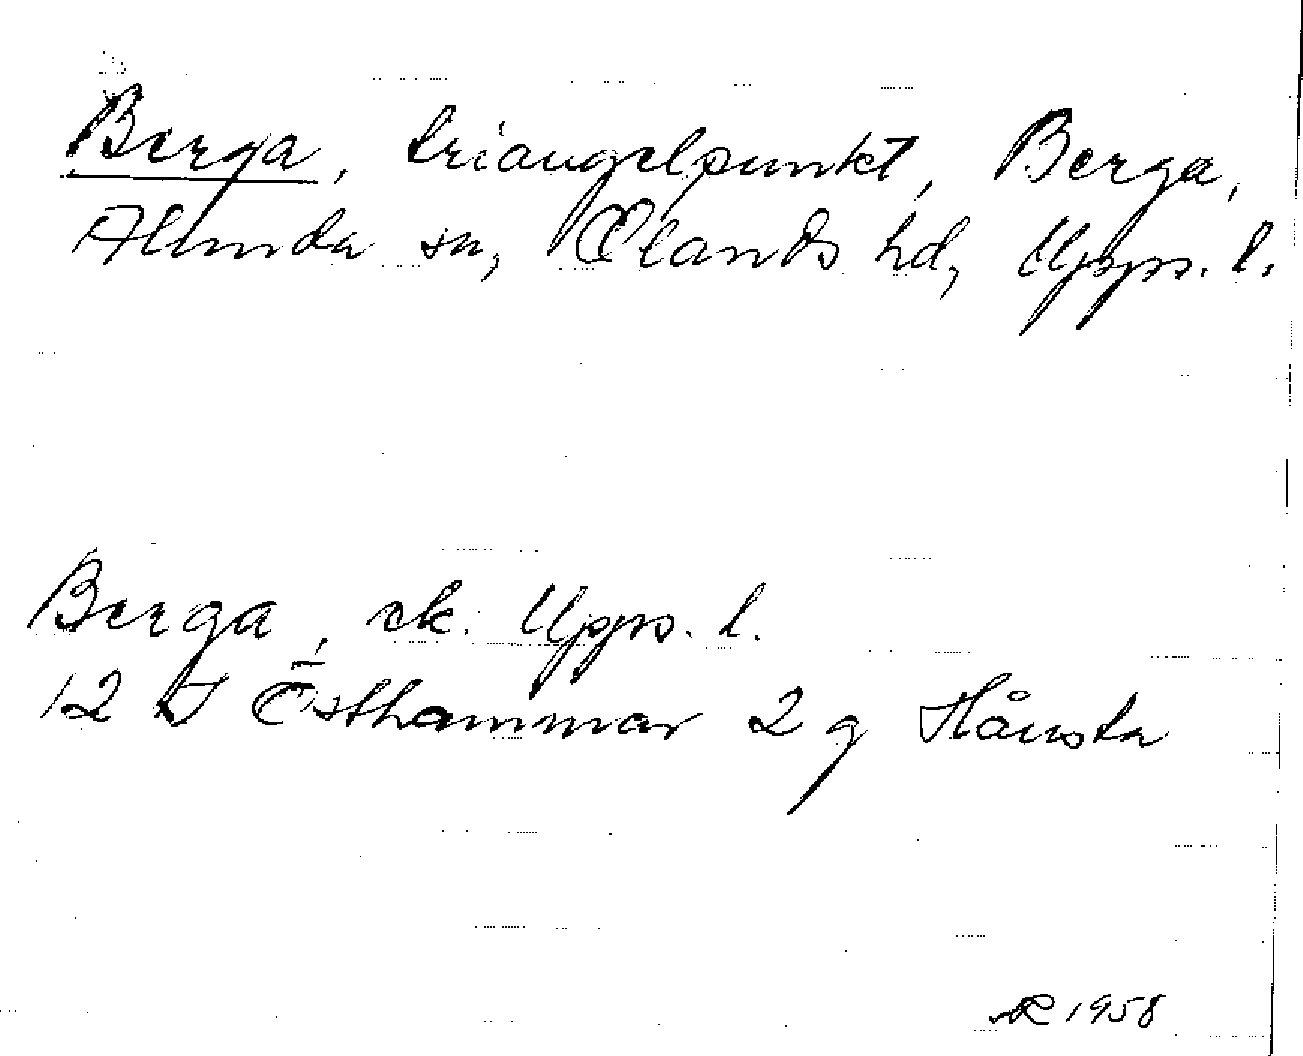 Berga, triangelpunkt, Berga,
Alunda sn, Olands hd, Upps. l.
Berga, ek. Upps. l.
12 I Östhammar 2 g Hånsta
AR 1958